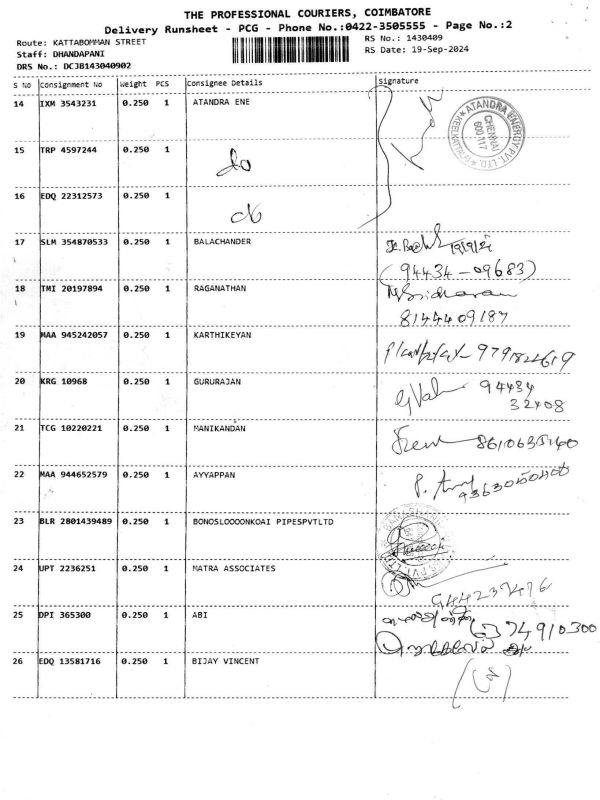 THE PROFESSIONAL COURIERS, COIMBATORE
Delivery Runsheet - PCG - Phone No.:0422-3505555 - Page No.:2
Route: KATTABOMMAN STREET
RS No.: 1430409
Staff: DHANDAPANI
RS Date: 19-Sep-2024
DRS No.: DCJB143040902
S No Consignment No Weight PCS Consignee Details Signature
14 IXM 3543231 0.250 1 ATANDRA ENE
ATANDRA ENERGY PVT. LTD. CHENNAI 600 117
15 TRP 4597244 0.250 1 do
16 EDQ 22312573 0.250 1 do
17 SLM 354870533 0.250 1 BALACHANDER 19/9/24
(94434-09683)
18 TMI 20197894 0.250 1 RAGANATHAN Sridharan
8144409187
19 MAA 945242057 0.250 1 KARTHIKEYAN
20 KRG 10968 0.250 1 GURURAJAN 94434
32408
21 TCG 10220221 0.250 1 MANIKANDAN
22 MAA 944652579 0.250 1 AYYAPPAN
23 BLR 2801439489 0.250 1 BONOSLOOOONKOAI PIPESPVTLTD
24 UPT 2236251 0.250 1 MATRA ASSOCIATES
9442237476
25 DPI 365300 0.250 1 ABI
6374910300
26 EDQ 13581716 0.250 1 BIJAY VINCENT